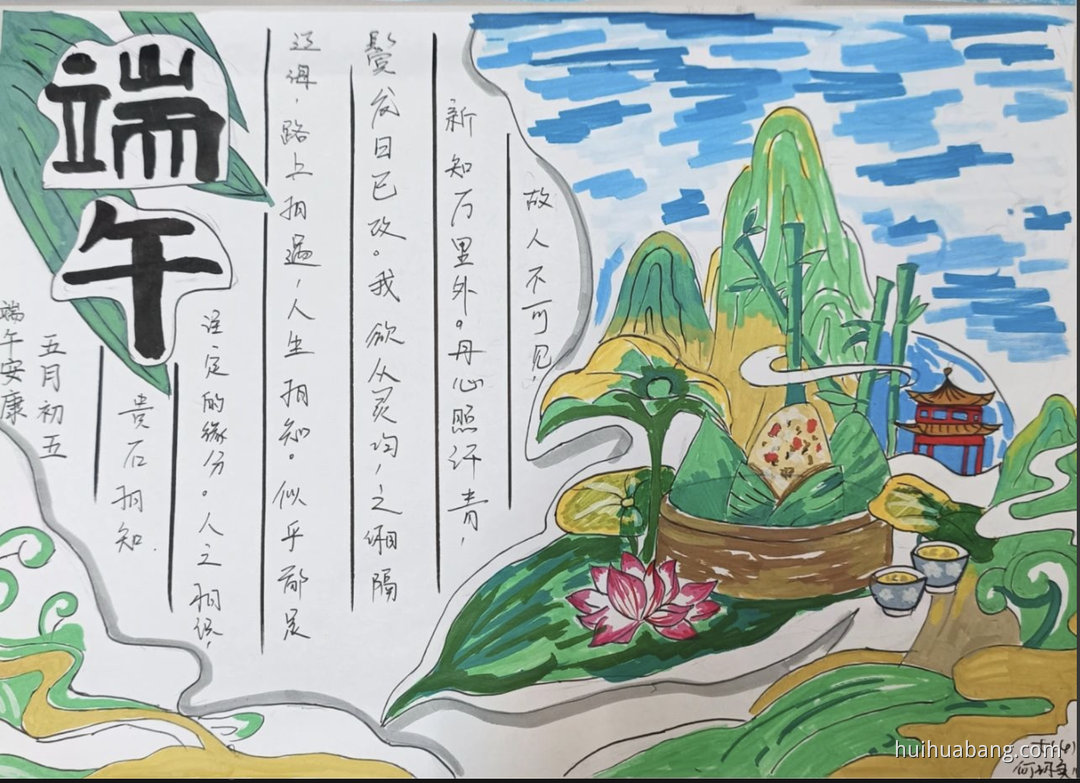 端午
故人不可见，
新知万里外。丹心照汗青，
鬓发日已改。我欲从灵均，之湘隔
辽海，路上相遇，人生相知。似乎都是
注定的缘分。人之相识，
贵在相知.
五月初五
端午安康
huihuabang.com